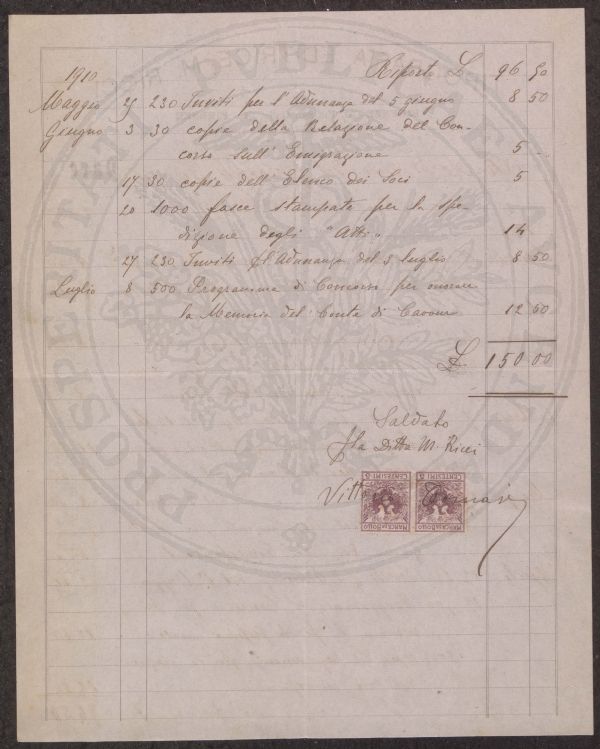 1910 Riporto L 96 50
Maggio 230 Inviti per l'Adunanza del 5 giugno 8 50
Giugno 3 30 copie della Relazione del Con-
corso sull'Emigrazione 5 _
17 30 copie dell'Elenco dei Soci 5
20 1000 fasce stampate per la spe-
dizione degli "Atti" 14
27 230 Inviti p l'Adunanza del 3 luglio 8 50
Luglio 8 500 Programma di Concorso per onorare
la Memoria del Conte di Cavour 12 50
L 150 00
Saldato
p la Ditta M. Ricci
CENTESIMI 5
CENTESIMI 5
MARCA DA BOLLO
MARCA DA BOLLO